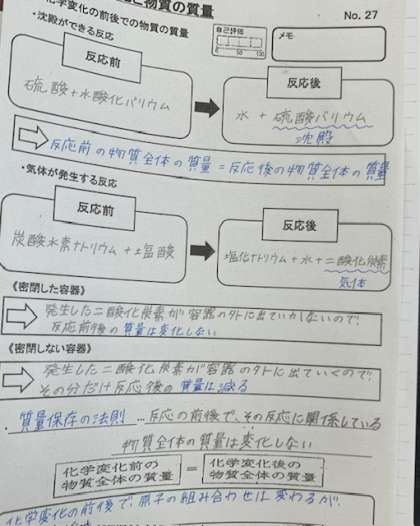 と物質の質量
化学変化の前後での物質の質量
No. 27
・沈殿ができる反応
自己評価
0 50 100
メモ
反応前
硫酸+水酸化バリウム
反応後
水 + 硫酸バリウム
沈殿
反応前の物質全体の質量=反応後の物質全体の質量
・気体が発生する反応
反応前
炭酸水素ナトリウム+塩酸
反応後
塩化ナトリウム+水+二酸化炭素
気体
《密閉した容器》
発生した二酸化炭素が容器の外に出ていかないので、
反応前後の質量は変化しない
《密閉しない容器》
発生した二酸化炭素が容器の外に出ていくので、
その分だけ反応後の質量は減る
・質量保存の法則 …反応の前後で、その反応に関係している
物質全体の質量は変化しない
化学変化前の
物質全体の質量
=
化学変化後の
物質全体の質量
化学変化の前後で、原子の組み合わせは変わるが、